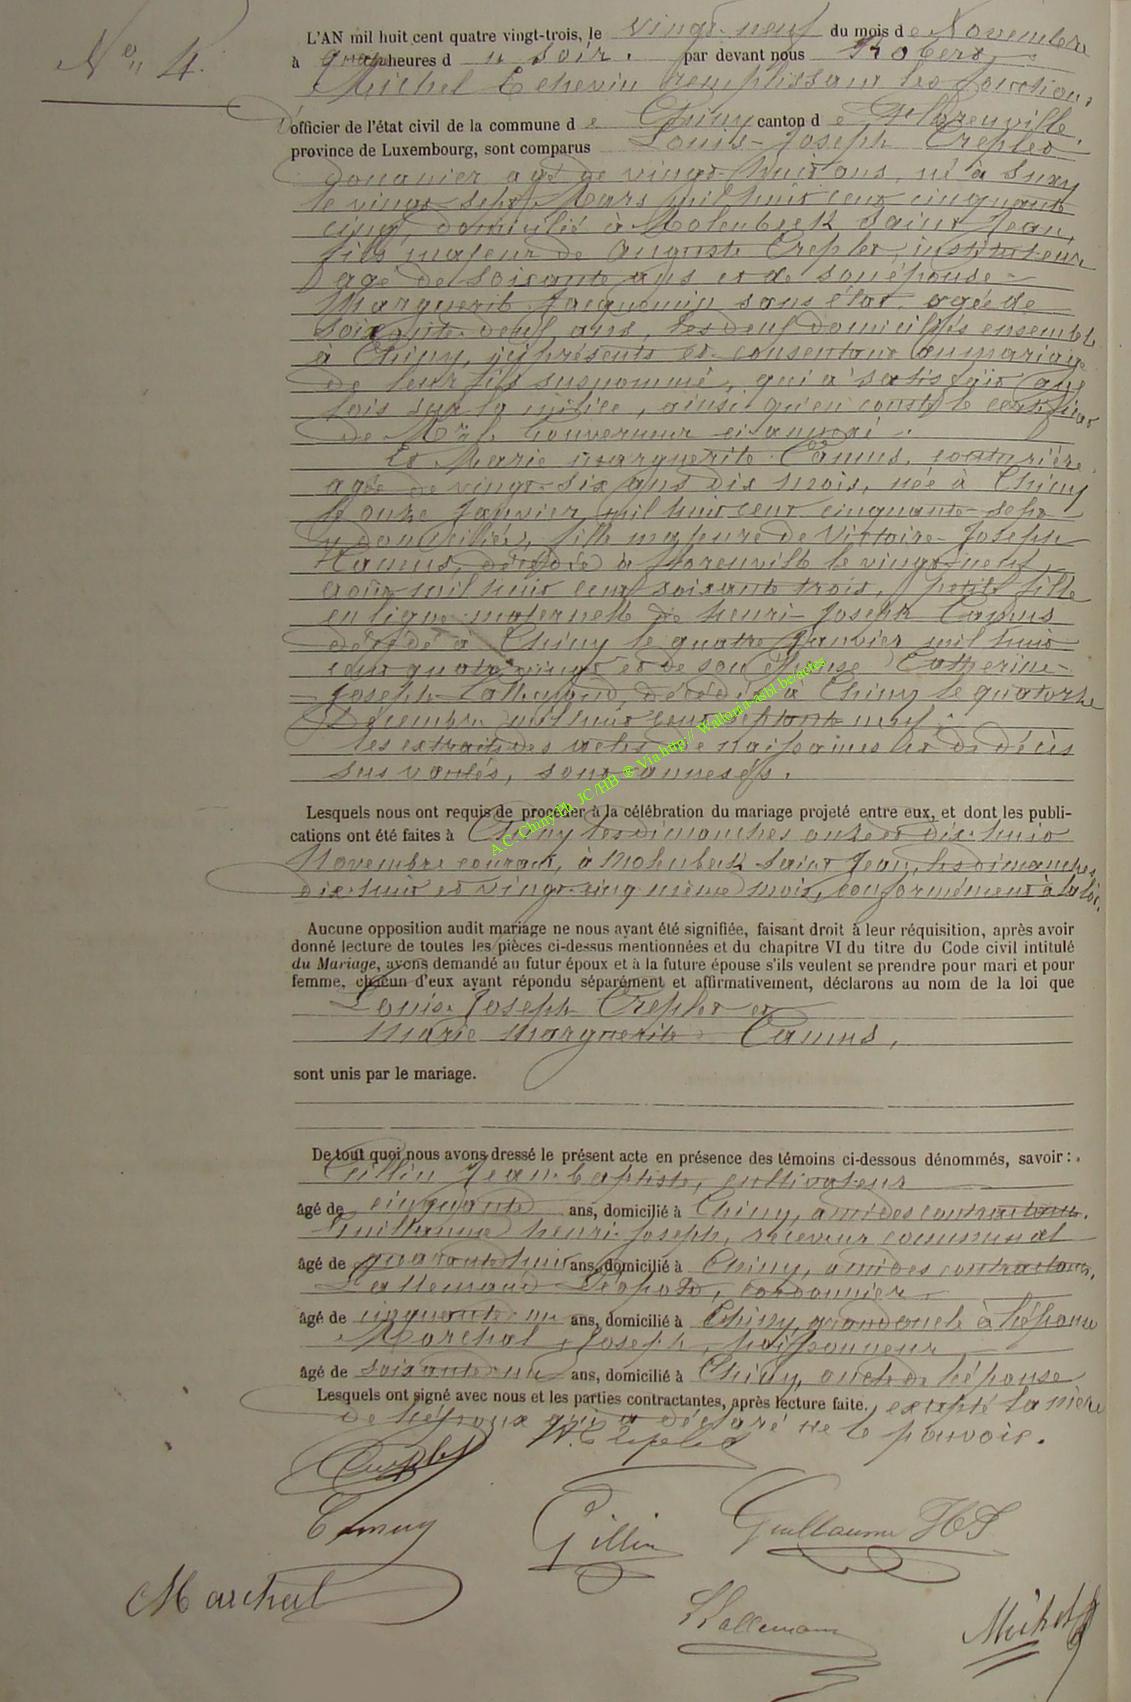 N° 4.
L'AN mil huit cent quatre vingt-trois, le vingt-neuf du mois de Novembre
à quatre heures du soir. par devant nous Robert
Michel Echevin remplissant les fonctions
d'officier de l'état civil de la commune de Chiny canton de Florenville
province de Luxembourg, sont comparus Louis-Joseph Crepler
douanier agé de vingt-huit ans, né à Suxy
le vingt-sept Mars mil huit cent cinquante
cinq, domicilié à Molenbeek Saint Jean,
fils majeur de Auguste Crepler, instituteur
agé de soixante ans et de son épouse
Marguerite Jacquemin sans état, agée de
soixante-deux ans, les deux domiciliés ensemble
à Chiny, ici présents et consentant au mariage
de leur fils susnommé, qui a satisfait aux
lois sur la milice, ainsi qu'en conste le certificat
de Mr le Gouverneur ci annexé.
Et Marie Marguerite Camus, couturière
agée de vingt-six ans dix mois, née à Chiny
le onze Janvier mil huit cent cinquante-sept
y domiciliée, fille majeure de Victoire-Joseph
Camus, décédée à Florenville le vingt-neuf
août mil huit cent soixante trois, petite fille
en ligne maternelle de henri-Joseph Camus
décédé à Chiny le quatre Janvier mil huit
cent quatre vingt et de son épouse Catherine-
Joseph décédée à Chiny le quatorze
Décembre mil huit cent septante neuf.
les extraits des actes de naissances et de décès
sus vantés, sont annexés.
Lesquels nous ont requis de procéder à la célébration du mariage projeté entre eux, et dont les publi-
cations ont été faites à Chiny les dimanches onze et dix-huit
Novembre courant, à Molenbeek-Saint Jean, les dimanches
dix-huit et vingt-cinq même mois, conformément à la loi.
Aucune opposition audit mariage ne nous ayant été signifiée, faisant droit à leur réquisition, après avoir
donné lecture de toutes les pièces ci-dessus mentionnées et du chapitre VI du titre du Code civil intitulé
du Mariage, avons demandé au futur époux et à la future épouse s'ils veulent se prendre pour mari et pour
femme, chacun d'eux ayant répondu séparément et affirmativement, déclarons au nom de la loi que
Louis-Joseph Crepler et
Marie Marguerite Camus,
sont unis par le mariage.
De tout quoi nous avons dressé le présent acte en présence des témoins ci-dessous dénommés, savoir :
Gillin Jean-baptiste, cultivateur
âgé de cinquante ans, domicilié à Chiny, ami des contractants.
Guillaume henri-Joseph, receveur communal
âgé de quarante huit ans, domicilié à Chiny, ami des contractants,
Lallemand Léopold, cordonnier
âgé de cinquante un ans, domicilié à Chiny, grand oncle à l'épouse
Marchal, Joseph, poissonneur
âgé de soixante un ans, domicilié à Chiny, oncle de l'épouse
Lesquels ont signé avec nous et les parties contractantes, après lecture faite, excepté la mère
de l'époux qui a déclaré ne le pouvoir.
Crepler
Camus
Gillin
Guillaume HJ
Marchal
Lallemand
Michel
A.C. Chiny Ph JC/HB ® Via http://Wallonia-asbl.be/actes